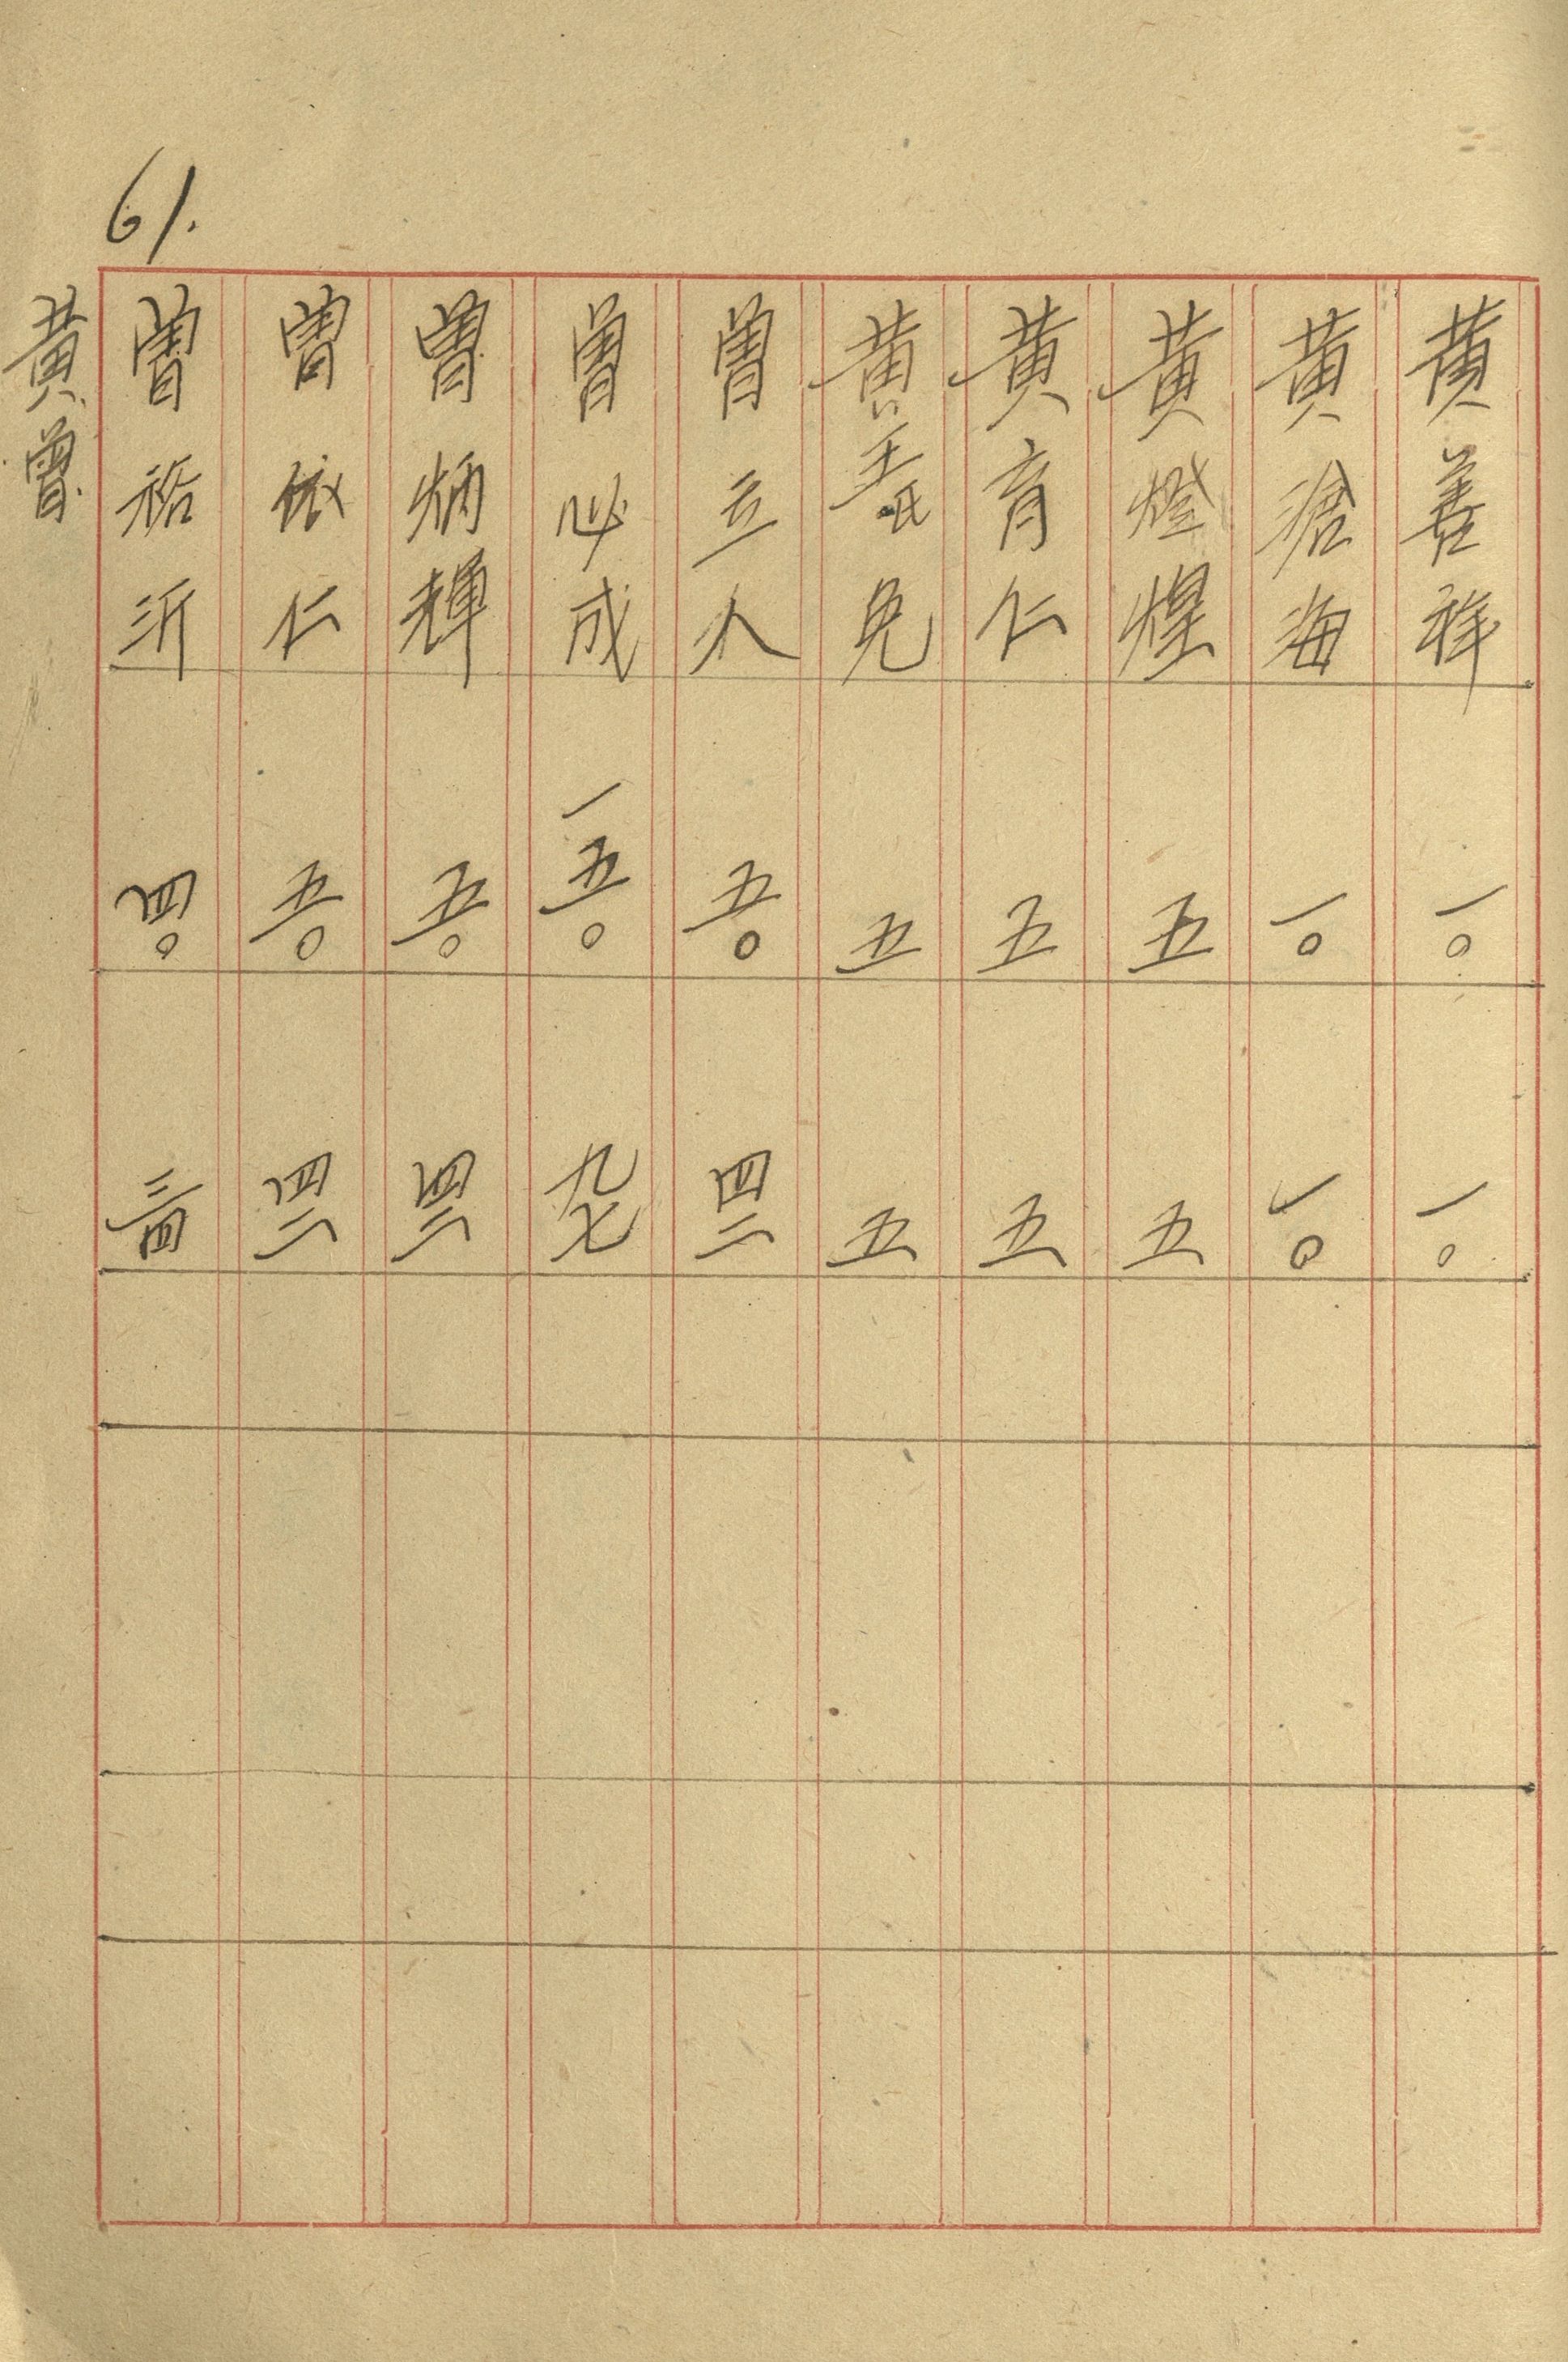 61.
黄善祥 一〇 一〇
黄滄海 一〇 一〇
黄燈煌 五 五
黄育仁 五 五
黄 兒 五 五
曾立人 五〇 四二
曾必成 一五〇 九七
曾炳輝 五〇 四二
曾依仁 五〇 四二
曾裕沂 四〇 三四
黄曾